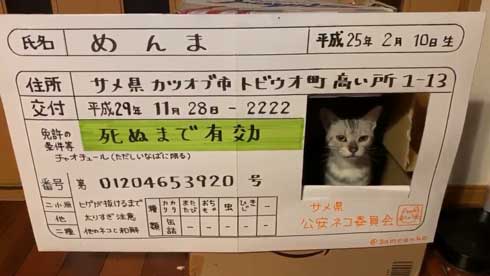 氏名 めんま 平成25年2月10日生
住所 サメ県カツオブ市トビウオ町高い所1-13
交付 平成29年11月28日-2222
免許の条件等 死ぬまで有効
チャオチュール(ただしいなばに限る)
番号 第 01204653920 号
二小原 ヒゲが抜けるまで
他 太りすぎ注意
二種 他のネコと和解
種類 カリカリ またたび おもちゃ 虫 ひも
缶詰
サメ県
公安ネコ委員会